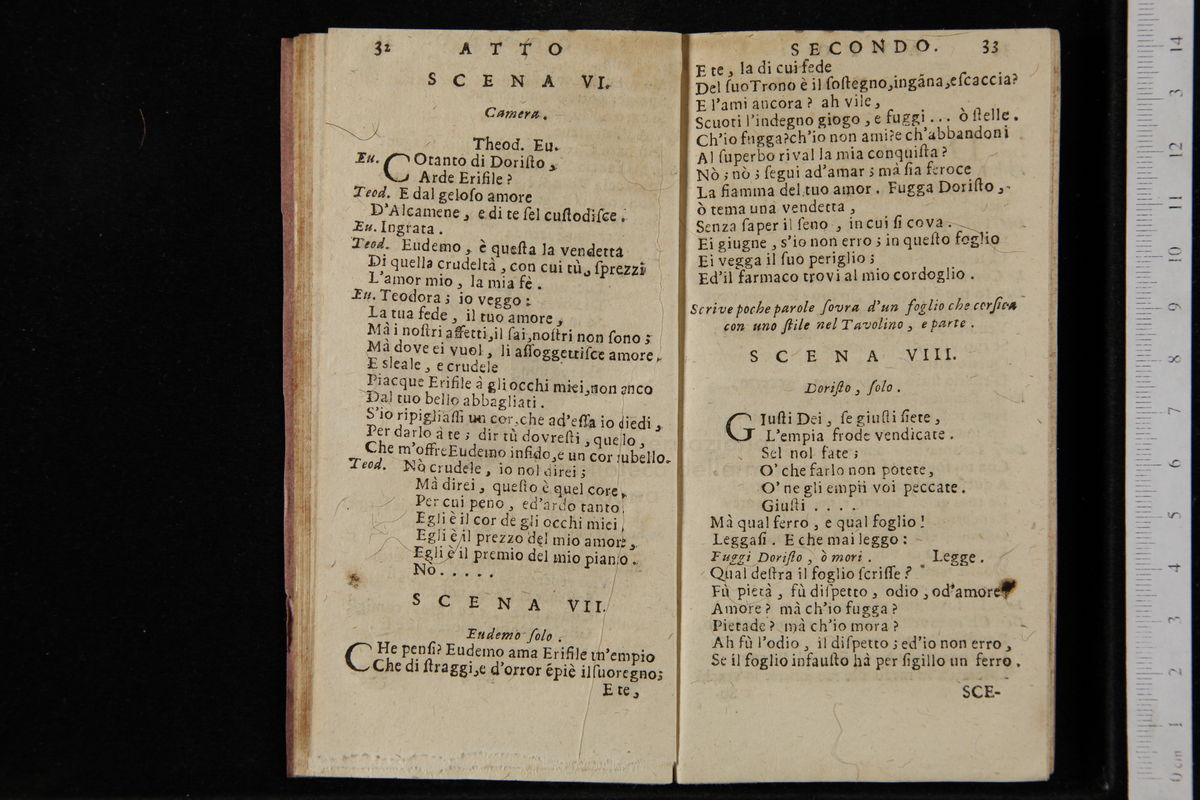 32 ATTO
SCENA VI.
Camera.
Theod. Eu.
Eu. COtanto di Doriſto,
Arde Erifile?
Teod. E dal geloſo amore
D'Alcamene, e di te ſel cuſtodiſce.
Eu. Ingrata.
Teod. Eudemo, è queſta la vendetta
Di quella crudeltà, con cui tù, ſprezzi
L'amor mio, la mia fè.
Eu. Teodora; io veggo:
La tua fede, il tuo amore,
Mà i noſtri affetti, il ſai, noſtri non ſono;
Mà dove ei vuol, li aſſoggettiſce amore.
E sleale, e crudele
Piacque Erifile à gli occhi miei, non anco
Dal tuo bello abbagliati.
S'io ripigliaſſi un cor, che ad'eſſa io diedi,
Per darlo à te; dir tù dovreſti, quello,
Che m'offre Eudemo infido, e un cor rubello.
Teod. Nò crudele, io nol direi;
Mà direi, queſto è quel core,
Per cui peno, ed'ardo tanto;
Egli è il cor de gli occhi miei,
Egli è il prezzo del mio amore,
Egli è il premio del mio pianto.
Nò.....
SCENA VII.
Eudemo ſolo.
CHe penſi? Eudemo ama Erifile un'empio
Che di ſtraggi, e d'orror épiè il ſuo regno;
E te,
SECONDO. 33
E te, la di cui fede
Del ſuo Trono è il ſoſtegno, ingãna, e ſcaccia?
E l'ami ancora? ah vile,
Scuoti l'indegno giogo, e fuggi... ò ſtelle.
Ch'io fugga? ch'io non ami? e ch'abbandoni
Al ſuperbo rival la mia conquiſta?
Nò; nò; ſegui ad'amar; mà ſia feroce
La fiamma del tuo amor. Fugga Doriſto,
ò tema una vendetta,
Senza ſaper il ſeno, in cui ſi cova.
Ei giugne, s'io non erro; in queſto foglio
Ei vegga il ſuo periglio;
Ed'il farmaco trovi al mio cordoglio.
Scrive poche parole ſovra d'un foglio che conficca
con uno ſtile nel Tavolino, e parte.
SCENA VIII.
Doriſto, ſolo.
GIuſti Dei, ſe giuſti ſiete,
L'empia frode vendicate.
Sel nol fate;
O' che farlo non potete,
O' ne gli empii voi peccate.
Giuſti....
Mà qual ferro, e qual foglio!
Leggaſi. E che mai leggo:
Fuggi Doriſto, ò mori. Legge.
Qual deſtra il foglio ſcriſſe?
Fù pietà, fù diſpetto, odio, od'amore?
Amore? mà ch'io fugga?
Pietade? mà ch'io mora?
Ah fù l'odio, il diſpetto; ed'io non erro,
Se il foglio infauſto hà per ſigillo un ferro.
SCE-
0 cm 1 2 3 4 5 6 7 8 9 10 11 12 3 14